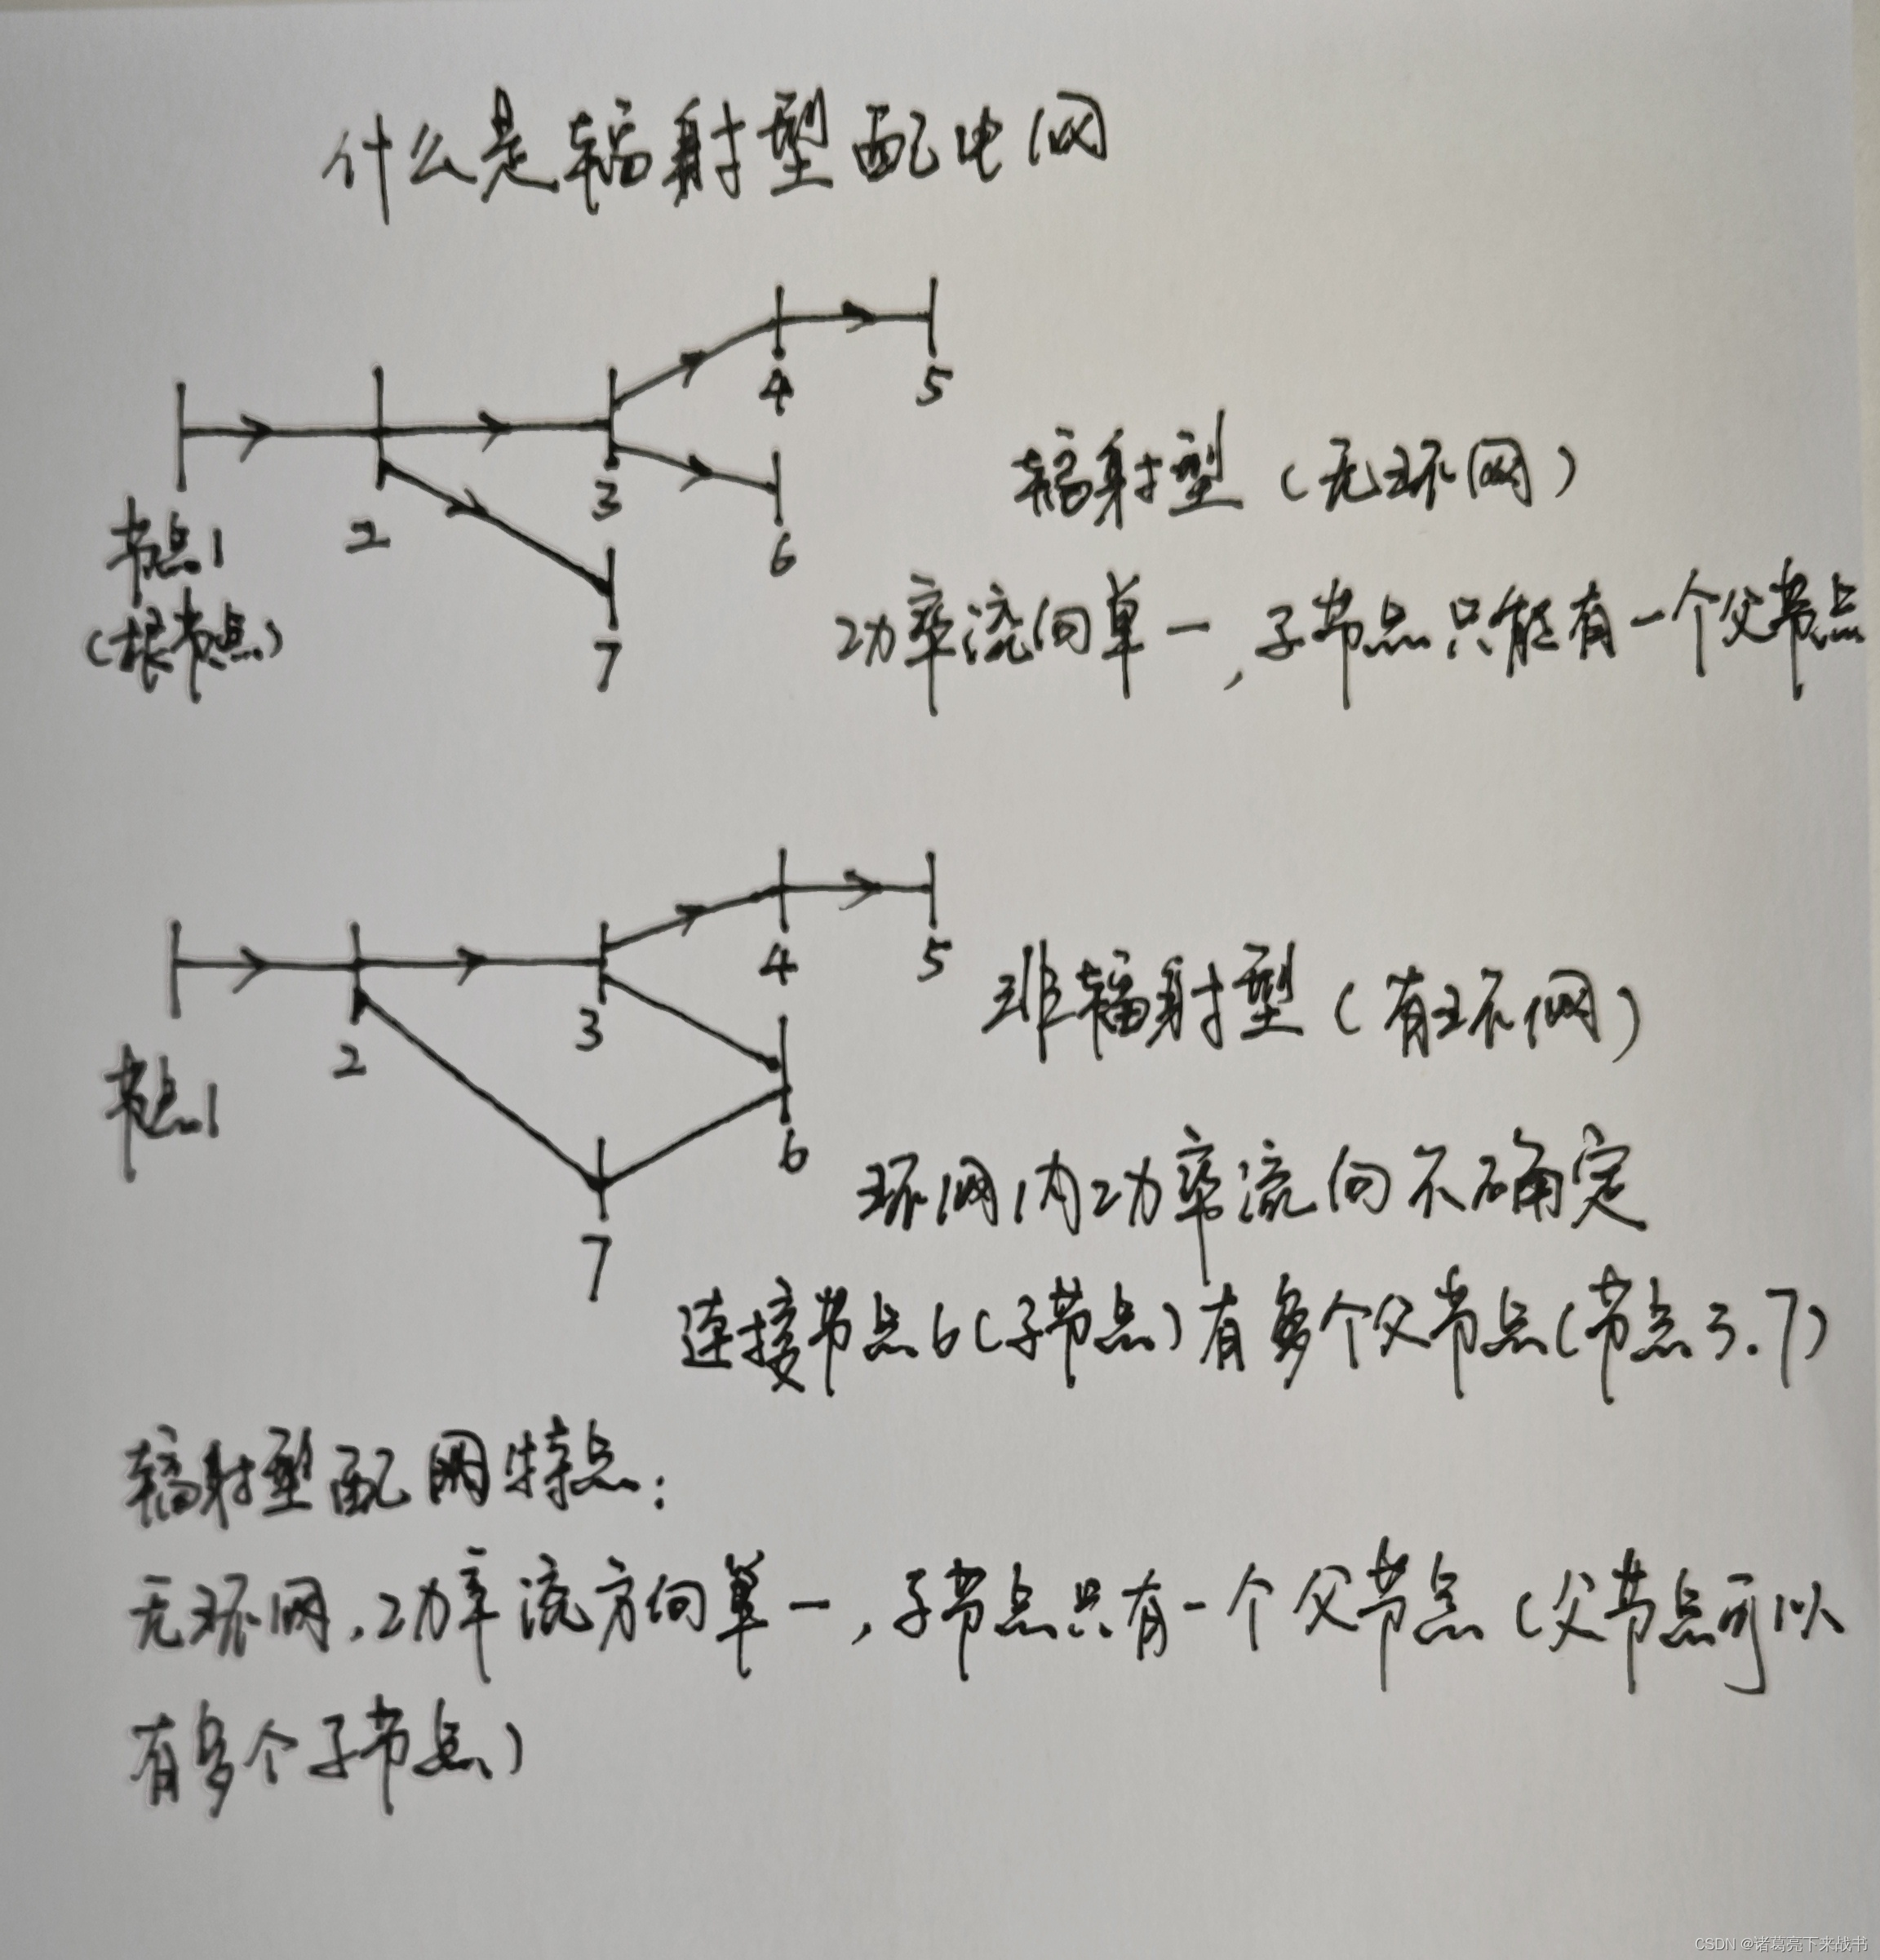 什么是辐射型配电网
4
5
3
6
2
节点1
(根节点)
7
辐射型（无环网）
功率流向单一，子节点只能有一个父节点
4
5
3
2
6
节点1
7
非辐射型（有环网）
环网内功率流向不确定
连接节点6(子节点)有多个父节点(节点3.7)
辐射型配网特点：
无环网，功率流方向单一，子节点只有一个父节点（父节点可以
有多个子节点）
CSDN @诸葛亮下来战书